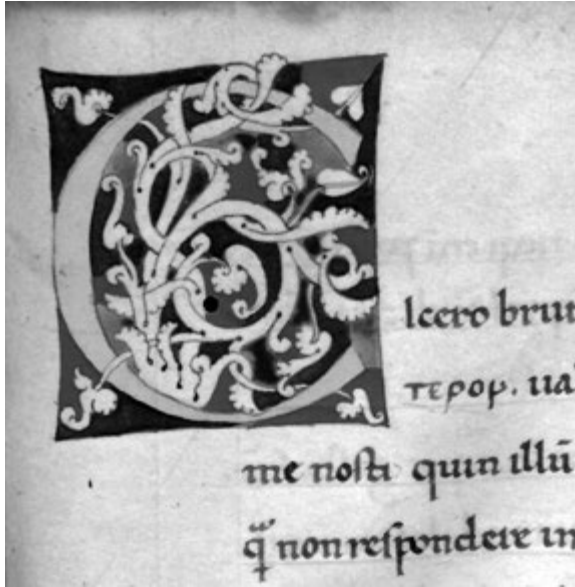 Cicero brut
τερορ. ual
me nosti quin illū
q̃ non respondere in